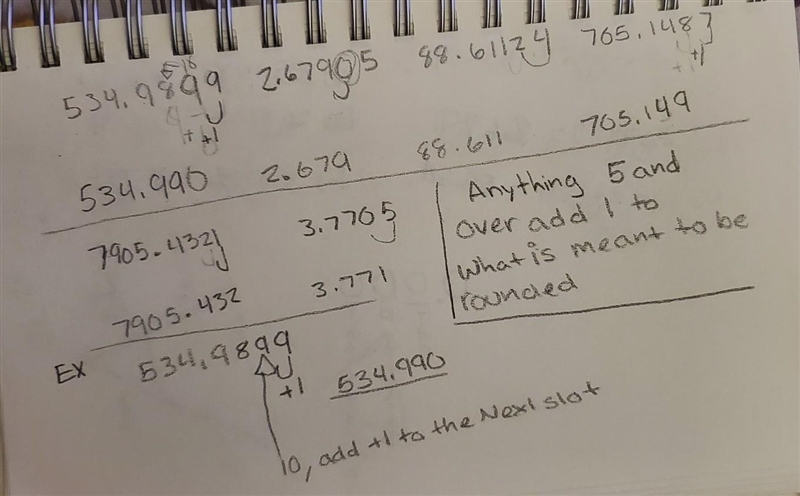 534.9899 2.67905 88.61124 705.1487
+ +1 +1
534.990 2.679 88.611 705.149
7905.4321 3.7705
7905.432 3.771
Anything 5 and
over add 1 to
what is meant to be
rounded
EX 534.9899
+1 534.990
10, add +1 to the Next slot